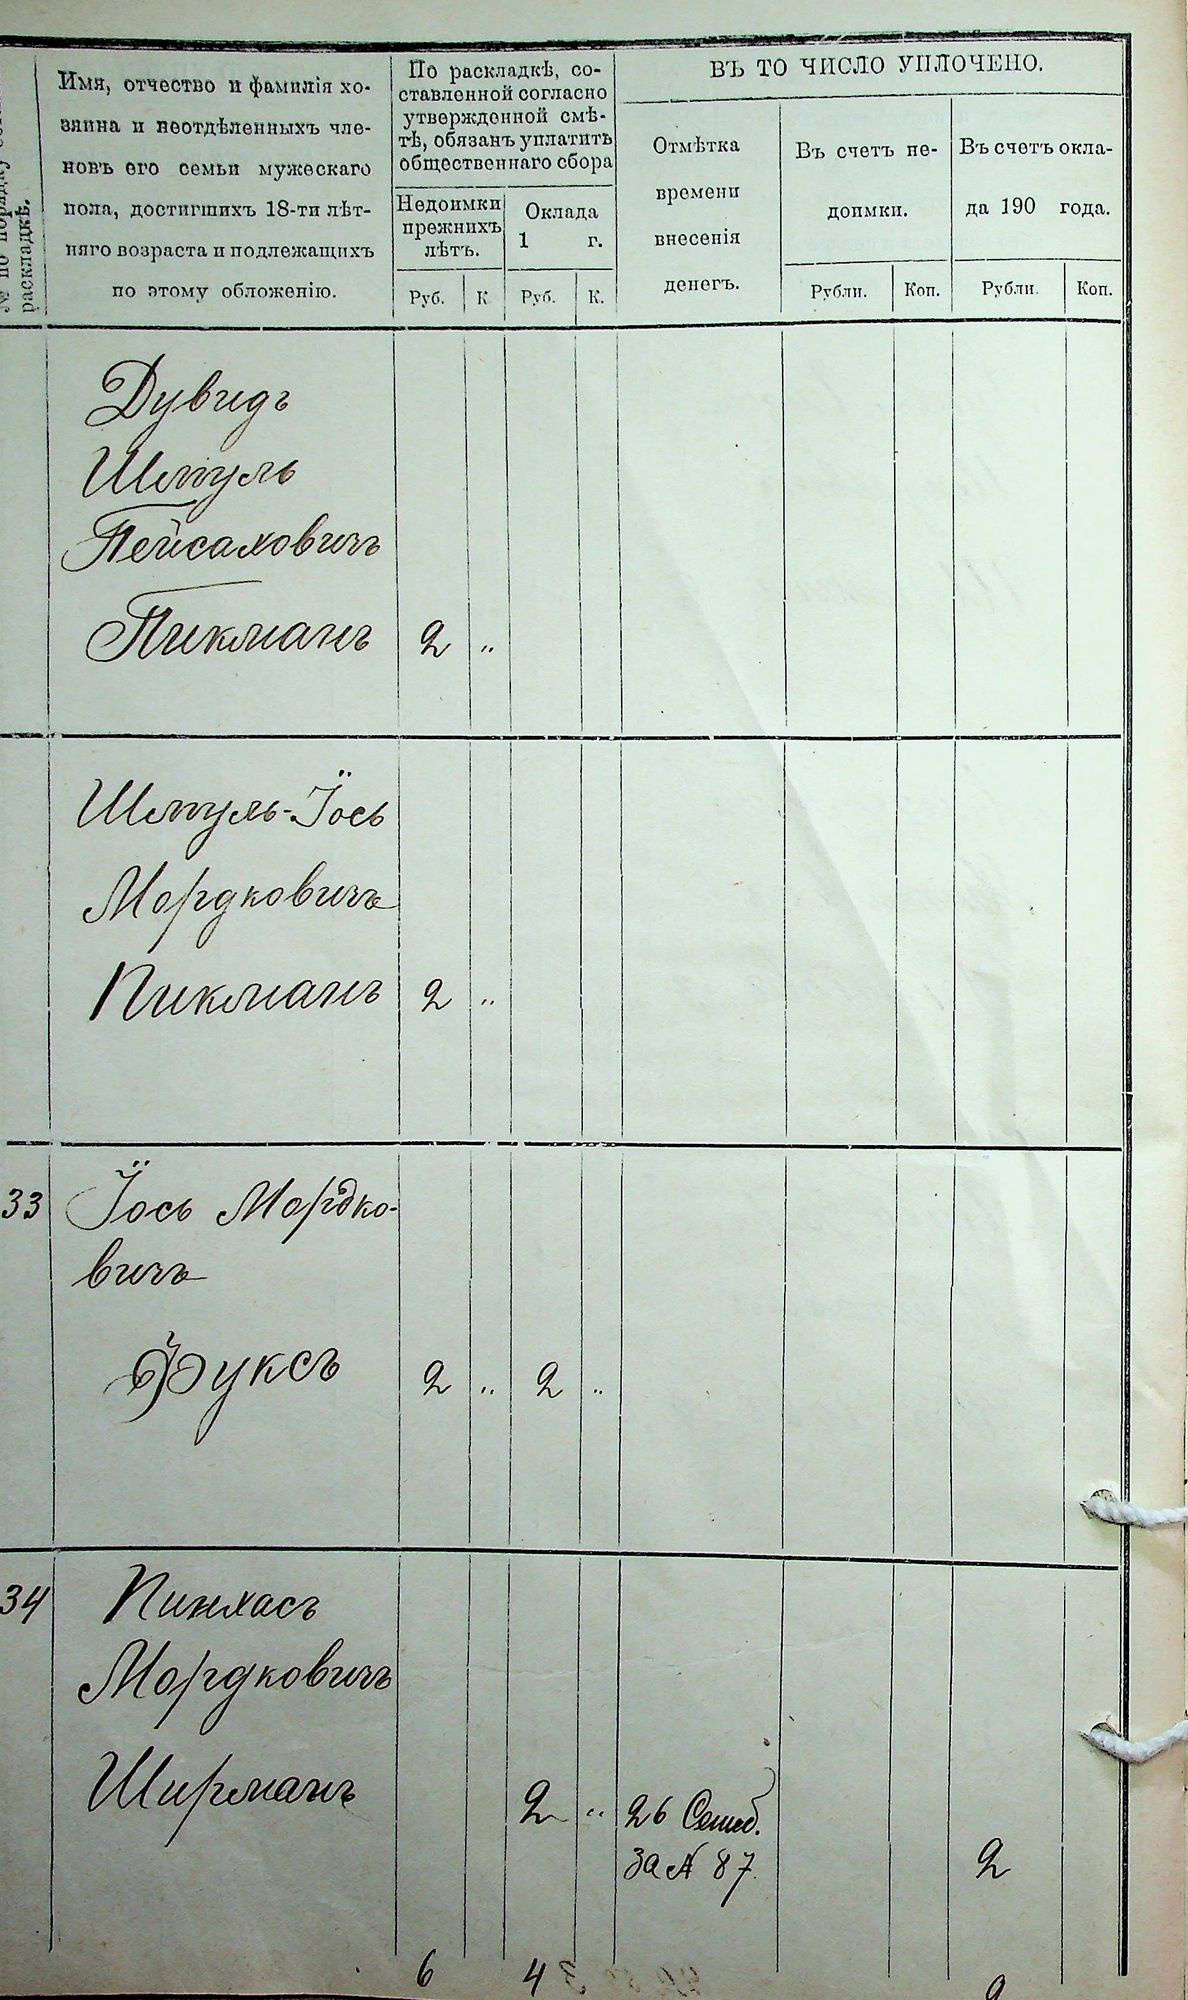 № по порядку
раскладкѣ.
Имя, отчество и фамилія хо-
зяина и неотдѣленныхъ чле-
новъ его семьи мужескаго
пола, достигшихъ 18-ти лѣт-
няго возраста и подлежащихъ
по этому обложенію.
По раскладкѣ, со-
ставленной согласно
утвержденной смѣ-
тѣ, обязанъ уплатить
общественнаго сбора
Недоимки
прежнихъ
лѣтъ.
Оклада
1 г.
Руб. К Руб. К.
ВЪ ТО ЧИСЛО УПЛОЧЕНО.
Отмѣтка
времени
внесенія
денегъ.
Въ счетъ не-
доимки.
Въ счетъ окла-
да 190 года.
Рубли. Коп. Рубли. Коп.
Дувидъ
Шмуль
Пейсаховичъ
Пикманъ 2 "
Шмуль-Іось
Мордковичъ
Пикманъ 2 "
33 Іось Мордко-
вичъ
Фуксъ 2 " 2 "
34 Пинхасъ
Мордковичъ
Ширманъ 2 " 26 Сент.
за № 87. 2
6 4 2